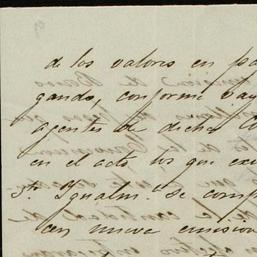 de los valores en pa
gando, conforme vay
agentes de dicha C
en el acto los que exi
5ª Igualm.te se comp
con nueva emision